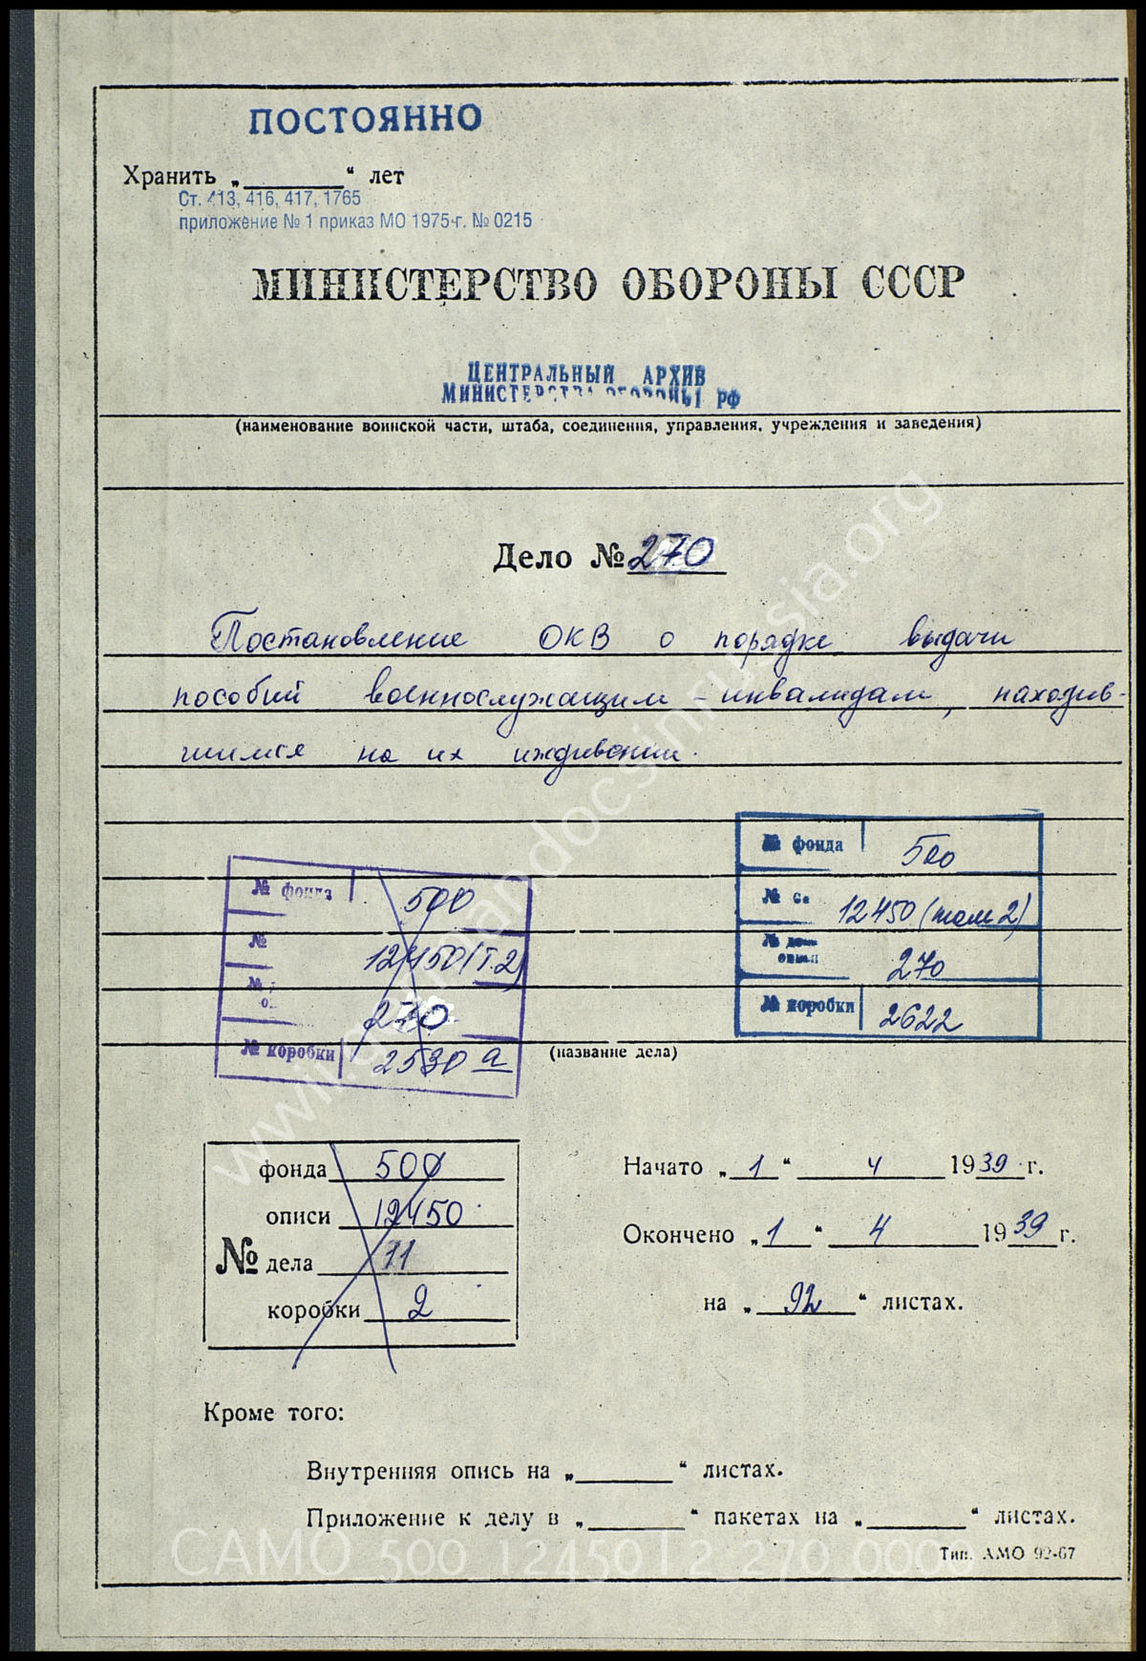 ПОСТОЯННО
Хранить „ “ лет
Ст. 413, 416, 417, 1765
приложение № 1 приказ МО 1975 г. № 0215
МИНИСТЕРСТВО ОБОРОНЫ СССР
ЦЕНТРАЛЬНЫЙ АРХИВ
МИНИСТЕРСТВА ОБОРОНЫ РФ
(наименование воинской части, штаба, соединения, управления, учреждения и заведения)
Дело № 270
Постановление ОКВ о порядке выдачи
пособий военнослужащим - инвалидам, находив-
шимся на их иждивении.
№ фонда 500
12450 (том 2)
270
№ коробки 2622
№ фонда 500
№ 12450 (Т.2)
270
№ коробки 2530 а
(название дела)
фонда 500
описи 12450
№ дела 11
коробки 2
Начато „ 1 “ 4 1939 г.
Окончено „ 1 “ 4 1939 г.
на „ 92 “ листах.
Кроме того:
Внутренняя опись на „ “ листах.
Приложение к делу в „ “ пакетах на „ “ листах.
Тип. АМО 92-67
CAMO_500_12450T2_270_000